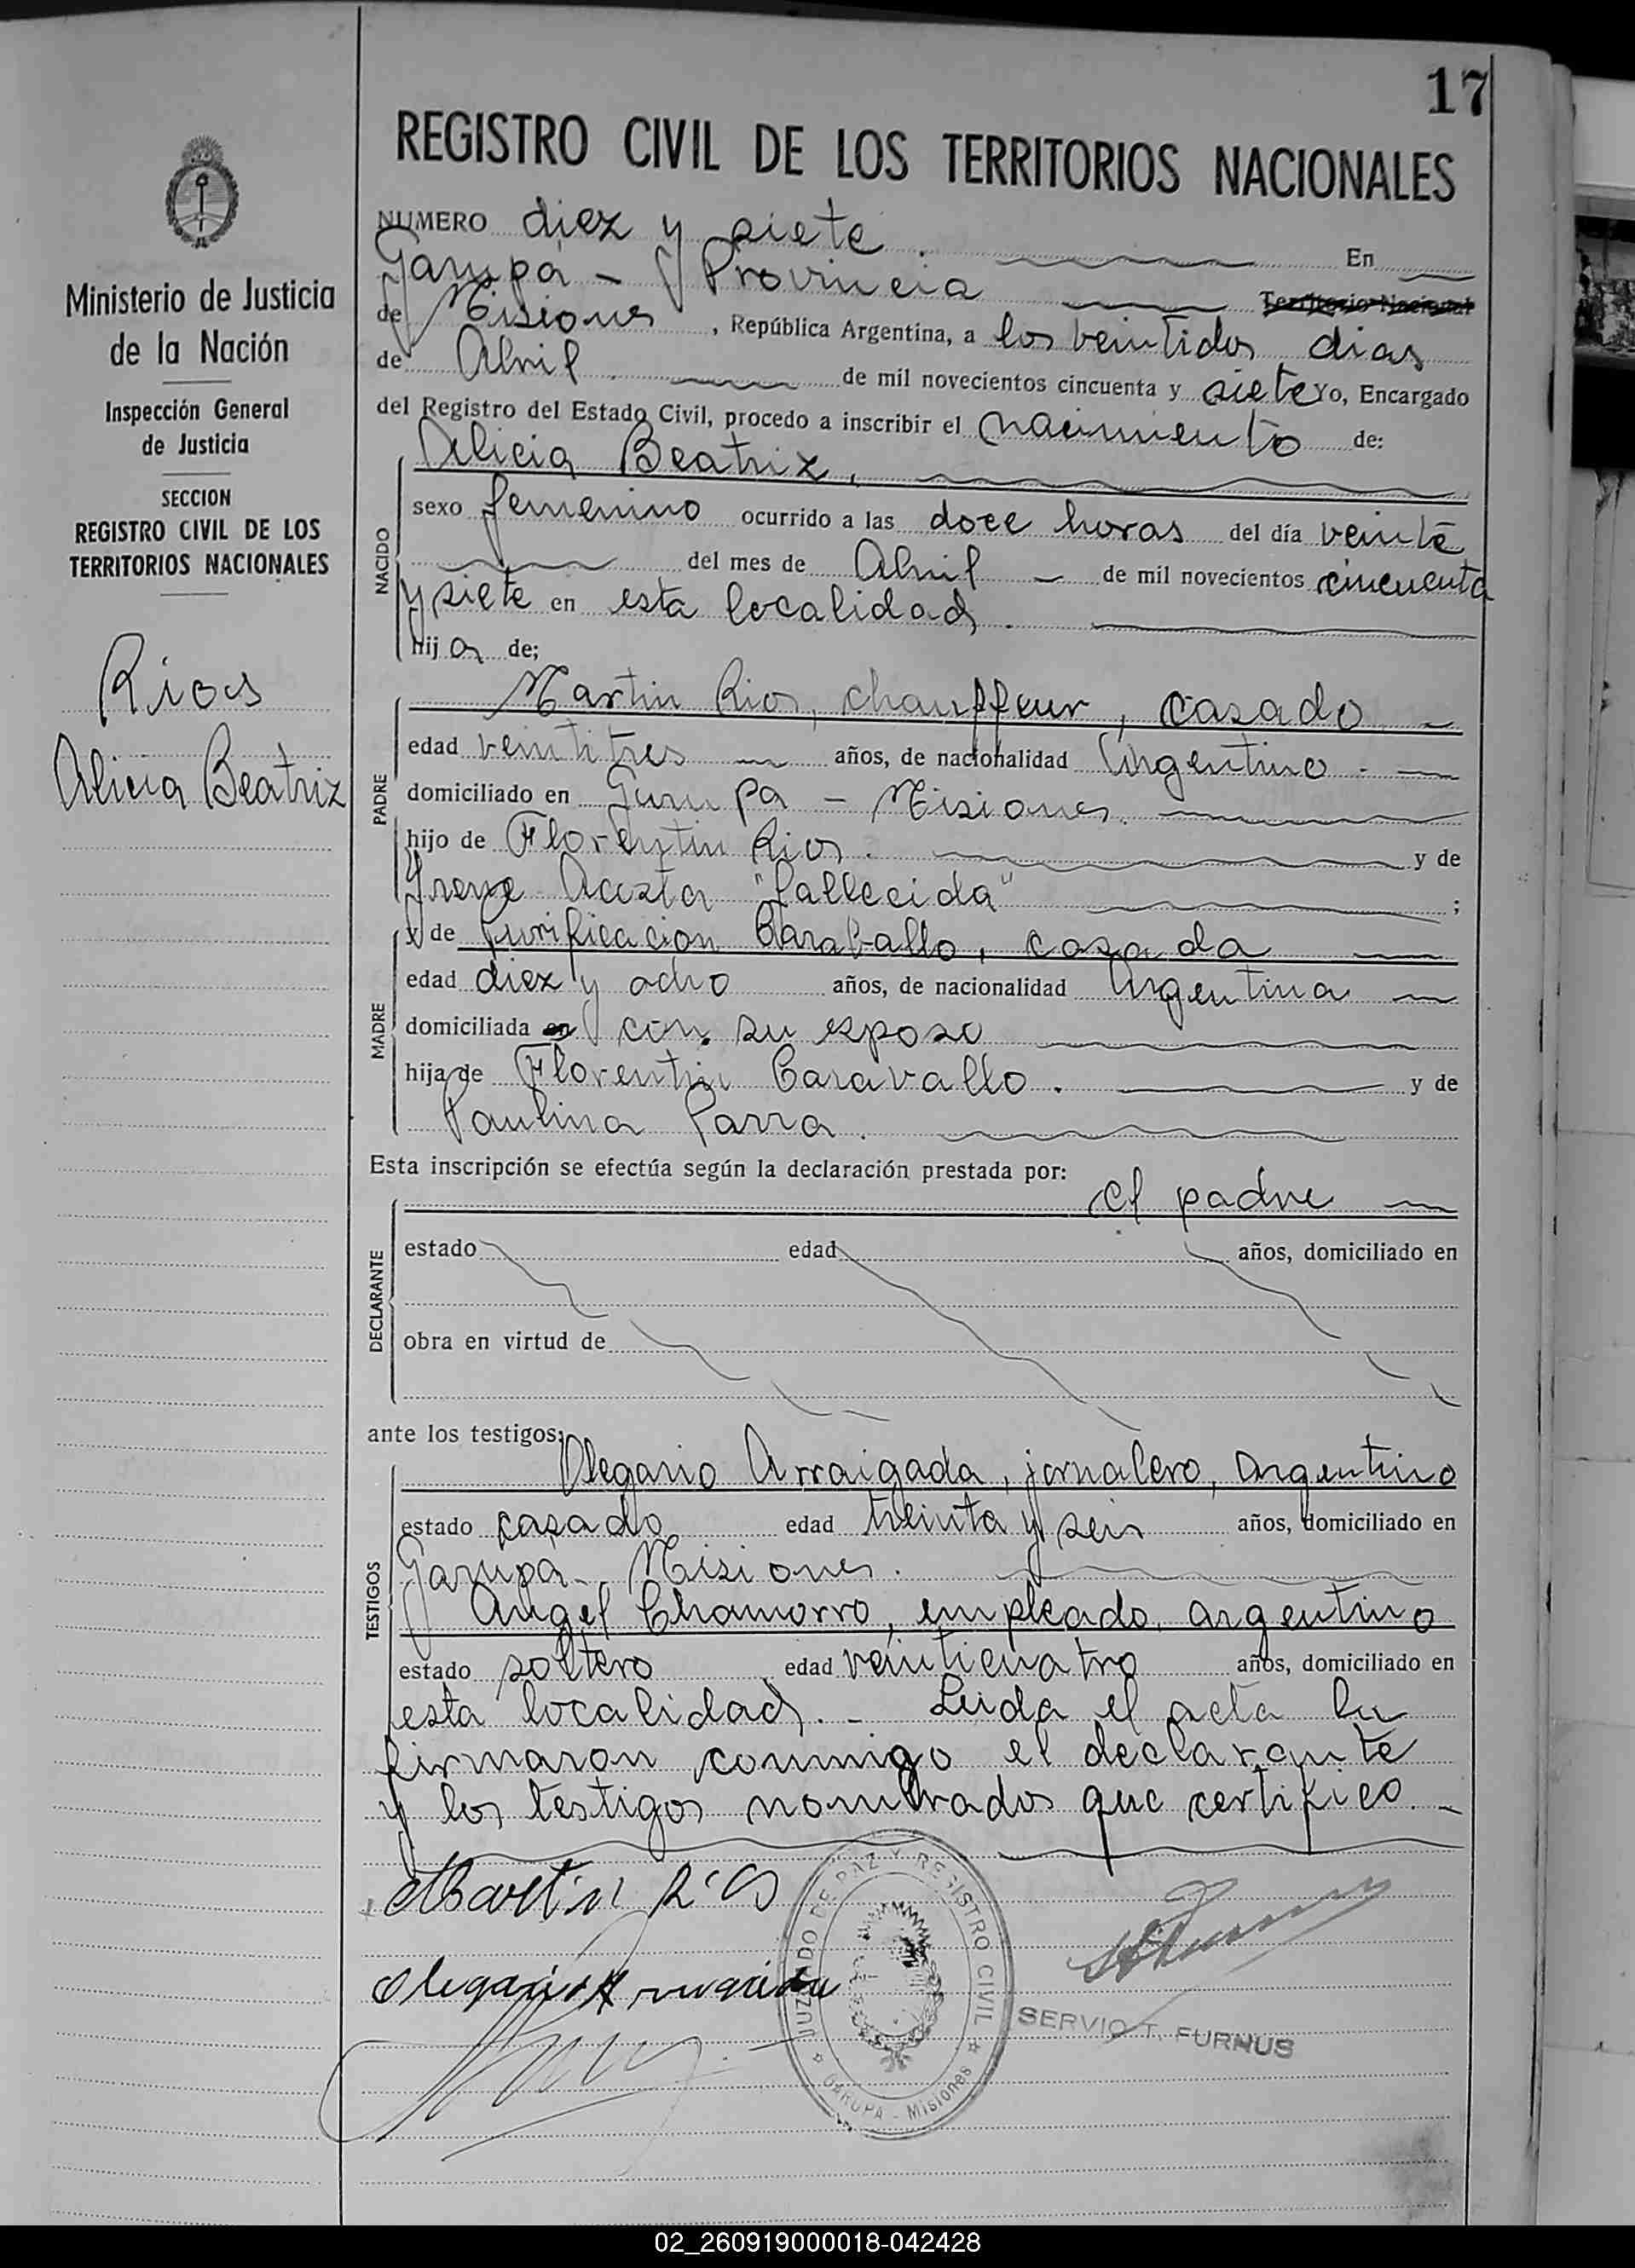 17
REGISTRO CIVIL DE LOS TERRITORIOS NACIONALES
Ministerio de Justicia
de la Nación
Inspección General
de Justicia
SECCION
REGISTRO CIVIL DE LOS
TERRITORIOS NACIONALES
Rios
Alicia Beatriz
NUMERO diez y siete. En
Garupá - Provincia Territorio Nacional
de Misiones, República Argentina, a los veintidos dias
de Abril de mil novecientos cincuenta y siete Yo, Encargado
del Registro del Estado Civil, procedo a inscribir el nacimiento de:
Alicia Beatriz,
NACIDO
sexo femenino ocurrido a las doce horas del día veinte
del mes de Abril - de mil novecientos cincuenta
y siete en esta localidad.
hija de;
PADRE
Martin Rios, chauffeur, casado -
edad veintitres años, de nacionalidad Argentino. -
domiciliado en Garupa - Misiones.
hijo de Florentin Rios. y de
Irene Acosta "fallecida" ;
MADRE
y de Purificacion Caraballo, casada
edad diez y ocho años, de nacionalidad Argentina
domiciliada en con su esposo
hija de Florentin Caravallo. y de
Paulina Parra.
Esta inscripción se efectúa según la declaración prestada por:
el padre
DECLARANTE
estado edad años, domiciliado en
obra en virtud de
ante los testigos:
TESTIGOS
Olegario Arraigada, jornalero, argentino
estado casado edad treinta y seis años, domiciliado en
Garupa - Misiones.
Angel Chamorro, empleado, argentino
estado soltero edad veinticuatro años, domiciliado en
esta localidad. - Leida el acta la
firmaron conmigo el declarante
y los testigos nombrados que certifico. -
Martin Rios
Olegario Arraigada
JUZGADO DE PAZ Y REGISTRO CIVIL
GARUPA - Misiones
SERVIO T. FURNUS
02_260919000018-042428